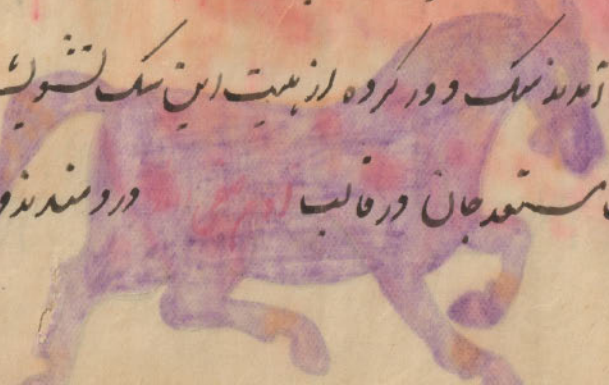 آمدند سک دور کرده از هیبت این سک تشویش
مستعد جان در قالب آدم در دمندند و